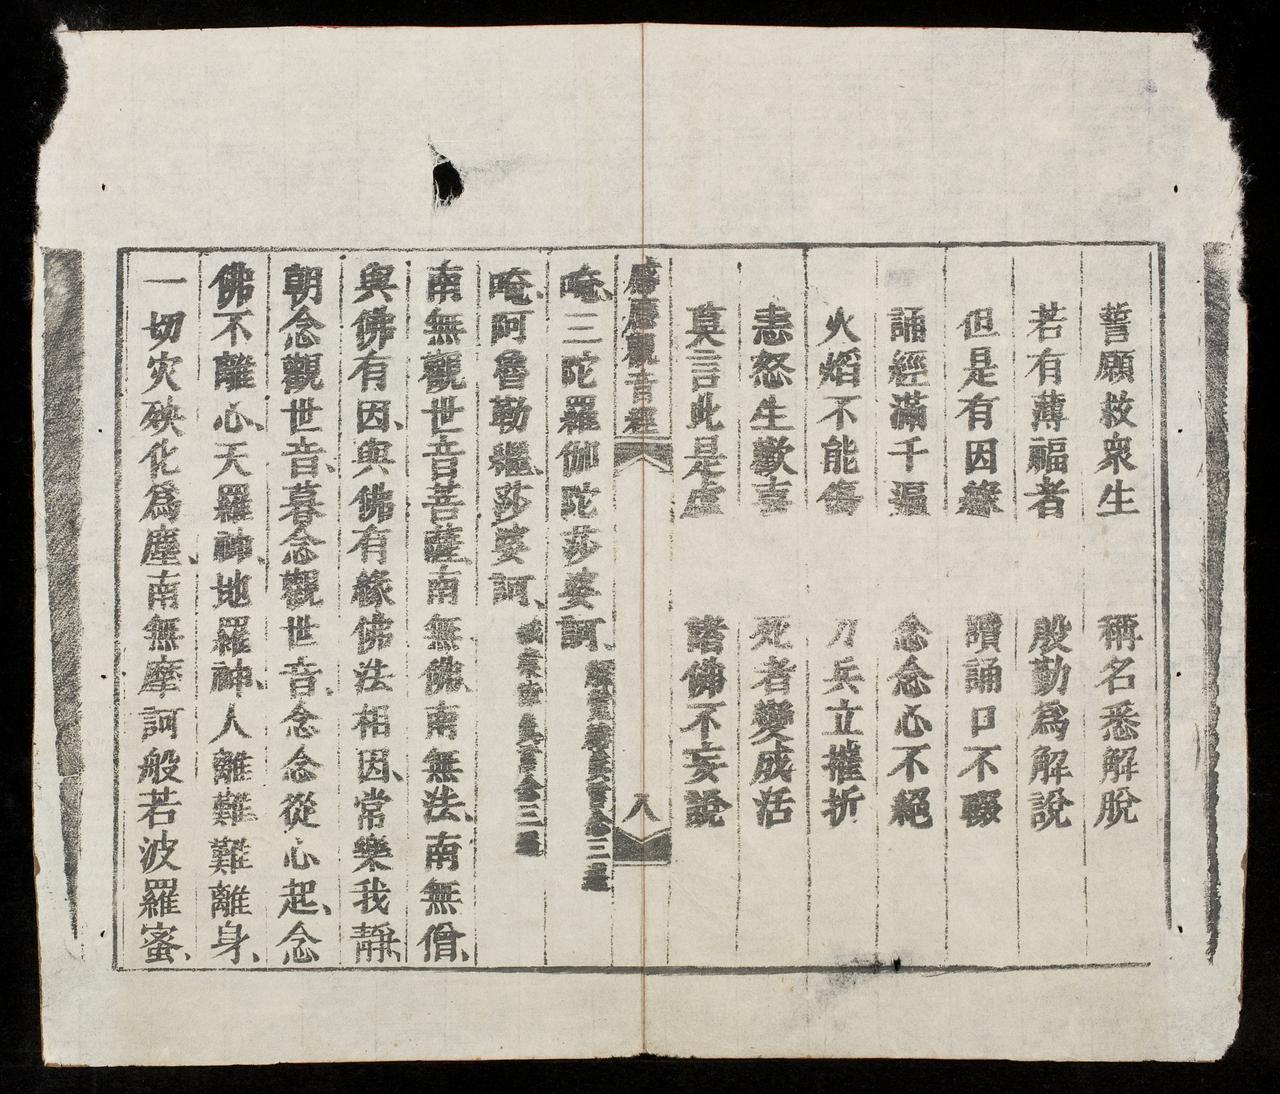 誓願救衆生　稱名悉解脫
若有薄福者　殷勤爲解說
但是有因緣　讀誦口不輟
誦經滿千遍　念念心不絕
火焰不能傷　刀兵立摧折
恚怒生歡喜　死者變成活
莫言此是虛　諸佛不妄說
觀音經
八
唵、三陀羅伽陀莎婆訶、
真言念三遍
唵、阿魯勒繼、莎婆訶、
真言念三遍
南無觀世音菩薩、南無佛、南無法、南無僧、
與佛有因、與佛有緣佛法相因、常樂我靜、
朝念觀世音、暮念觀世音、念念從心起、念
佛不離心、天羅神、地羅神、人離難、難離身、
一切灾殃化爲塵、南無摩訶般若波羅蜜、